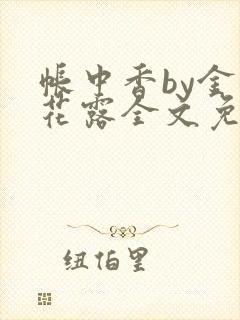 帐中香by金
花露全文免
纽伯里